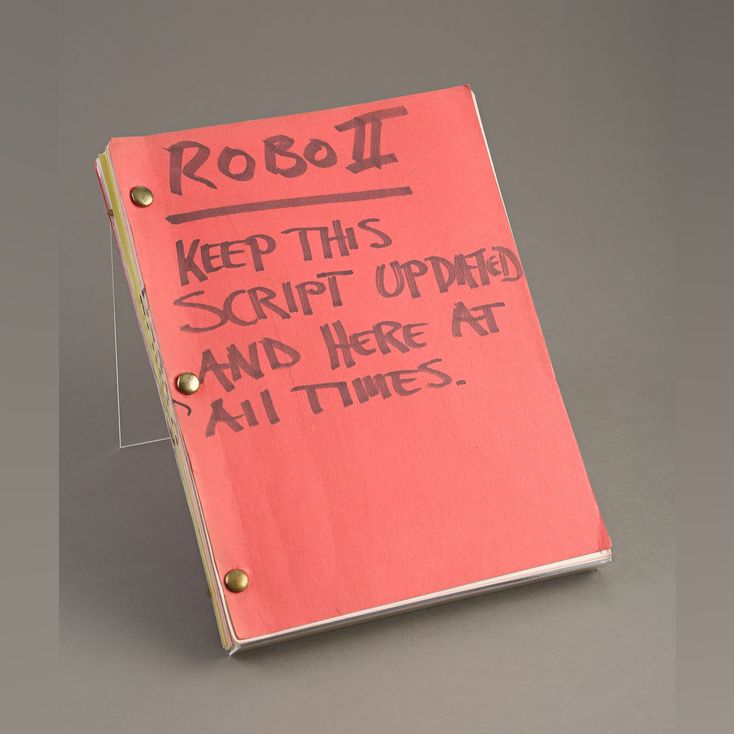 ROBO II
KEEP THIS
SCRIPT UPDATED
AND HERE AT
All TIMES.